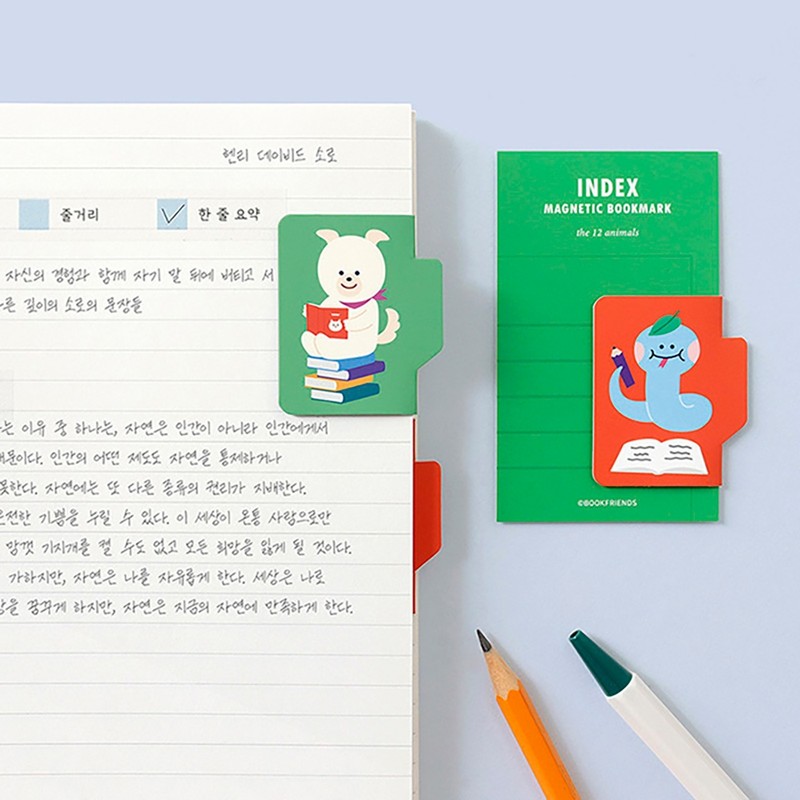 헨리 데이비드 소로
줄거리
한 줄 요약
자신의 경험과 함께 자기 말 뒤에 버티고 서
깊이의 소로의 문장들
이유 중 하나는, 자연은 인간이 아니라 인간에게서
때문이다. 인간의 어떤 제도도 자연을 통제하거나
못한다. 자연에는 또 다른 종류의 권리가 지배한다.
온전한 기쁨을 누릴 수 있다. 이 세상이 온통 사람으로만
맘껏 기지개를 켤 수도 없고 모든 희망을 잃게 될 것이다.
가하지만, 자연은 나를 자유롭게 한다. 세상은 나로
꿈꾸게 하지만, 자연은 지금의 자연에 만족하게 한다.
INDEX
MAGNETIC BOOKMARK
the 12 animals
©BOOKFRIENDS